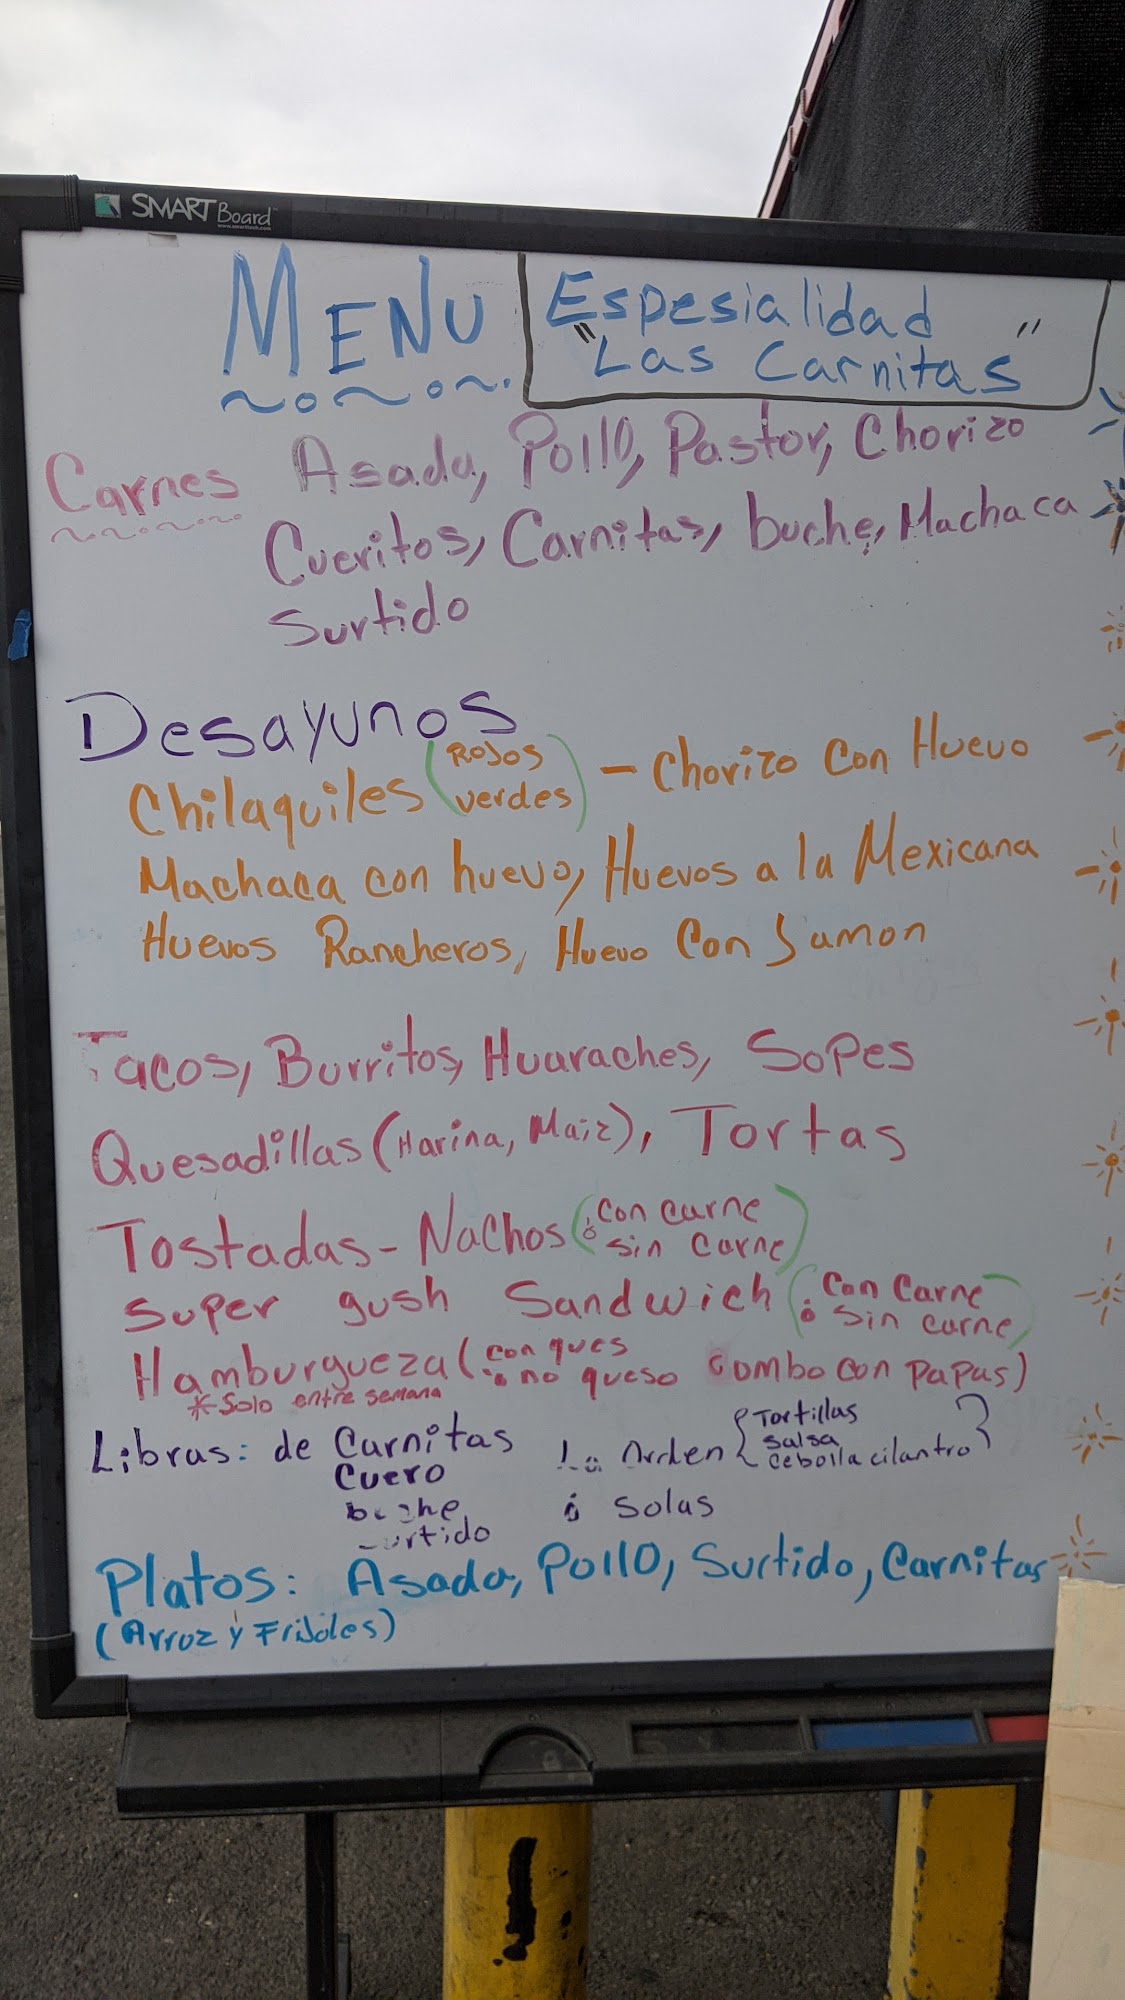 SMART Board
www.smarttech.com
MENU
Espesialidad
"Las Carnitas"
Carnes Asada, Pollo, Pastor, Chorizo
Cueritos, Carnitas, buche, Machaca
Surtido
Desayunos
Chilaquiles (Rojos verdes) - Chorizo Con Huevo
Machaca con huevo, Huevos a la Mexicana
Huevos Rancheros, Huevo Con Jamon
Tacos, Burritos, Huaraches, Sopes
Quesadillas (Harina, Maiz), Tortas
Tostadas - Nachos (con carne ó sin carne)
Super gush Sandwich (Con Carne ó Sin carne)
Hamburgueza (con ques ó no queso Combo con papas)
*Solo entre semana
Libras: de Carnitas La Orden {Tortillas salsa cebolla cilantro}
Cuero
buche ó Solas
surtido
Platos: Asada, Pollo, Surtido, Carnitas
(Arroz y Frijoles)